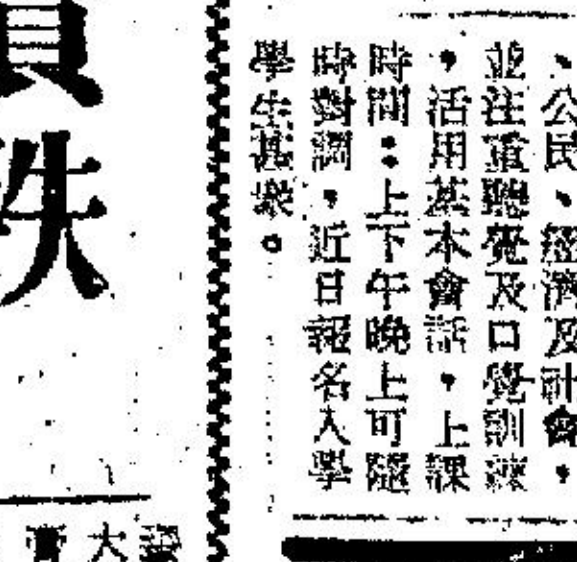 、公民、經濟及社會，
並注重聽覺及口覺訓練
，活用基本會話，上課
時間：上下午晚上可隨
時對調，近日報名入學
學生甚衆。